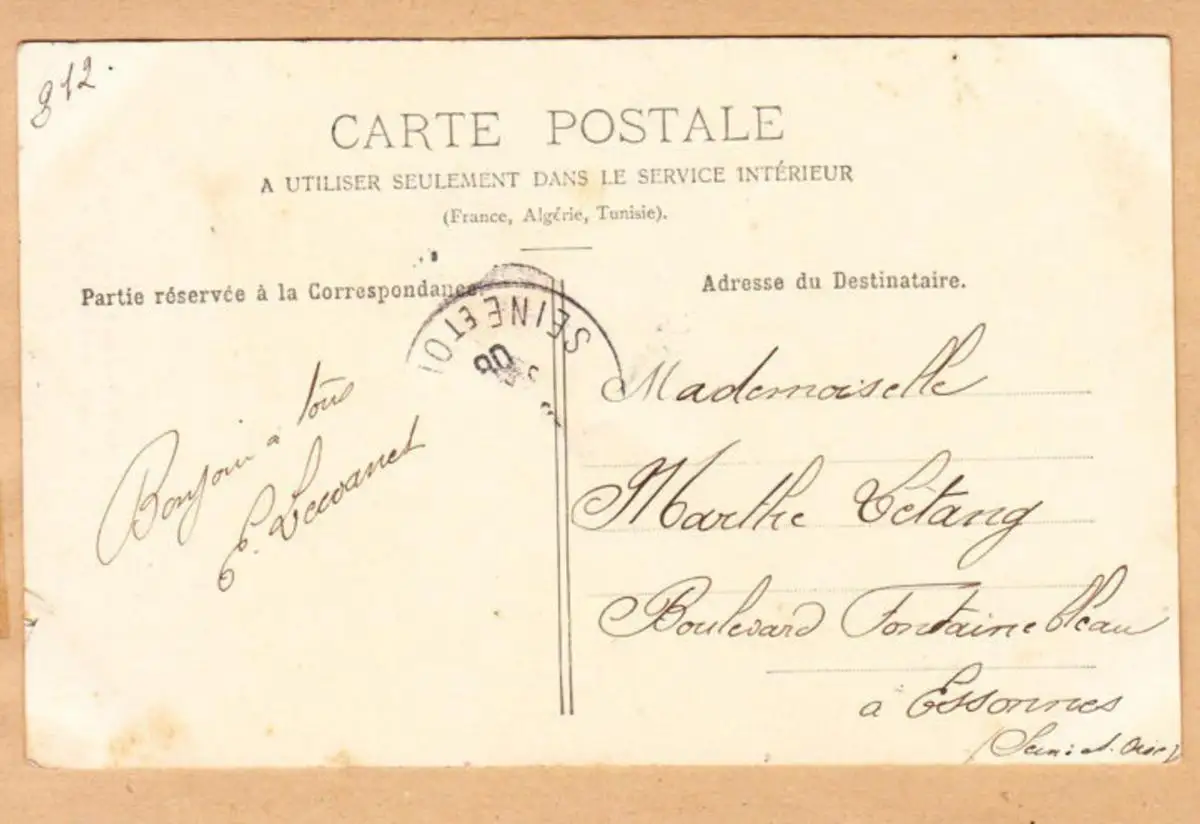 812.
CARTE POSTALE
A UTILISER SEULEMENT DANS LE SERVICE INTÉRIEUR
(France, Algérie, Tunisie).
Partie réservée à la Correspondance.
Adresse du Destinataire.
SEINE ET OI
08
Bonjour à tous
E.
Mademoiselle
Marthe Létang
Boulevard Fontainebleau
à Essonnes
(Seine et Oise)